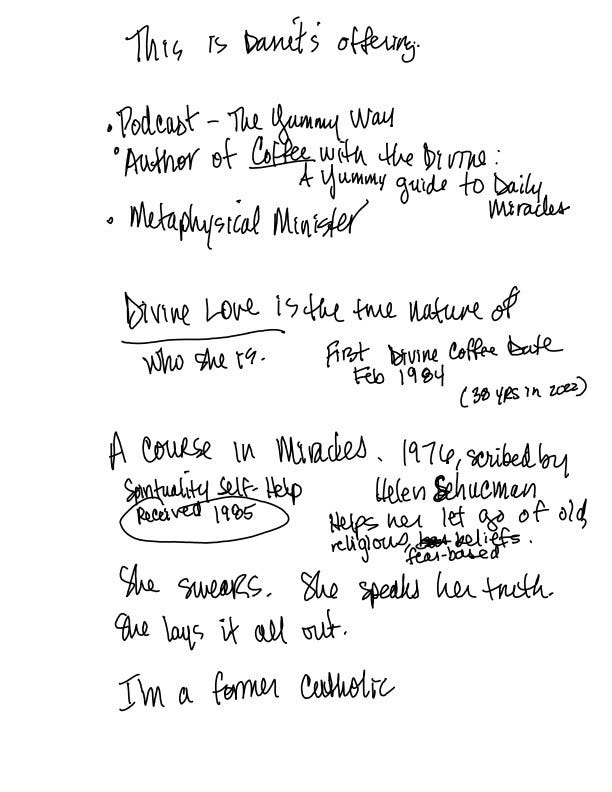 This is Danét's offering.
• Podcast – The Yummy Way
• Author of Coffee with the Divine:
A Yummy guide to Daily
Miracles
• Metaphysical Minister
Divine Love is the true nature of
who she is.
First Divine Coffee Date
Feb 1984
(38 yrs in 2022)
A course in Miracles. 1976, scribed by
Helen Schucman
Spirituality Self-Help
Received 1985
Helps her let go of old
religious, beliefs.
fear-based
She swears. She speaks her truth.
She lays it all out.
I'm a former Catholic